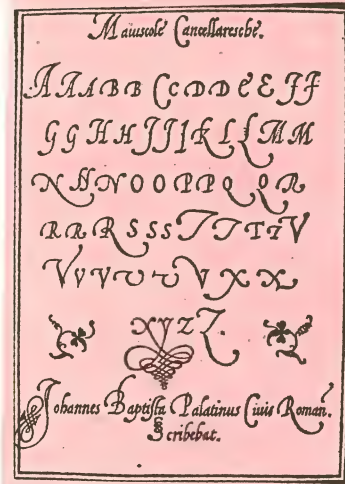 Maiuscole Cancellaresche.
A A A B B C C D D E E F F
G G H H I I I K L L M M
N N N O O P P Q Q R
R R R S S S T T T T V
V V V V V V X X
X Y Z Z.
Johannes Baptista Palatinus Civis Roman̄.
Scribebat.